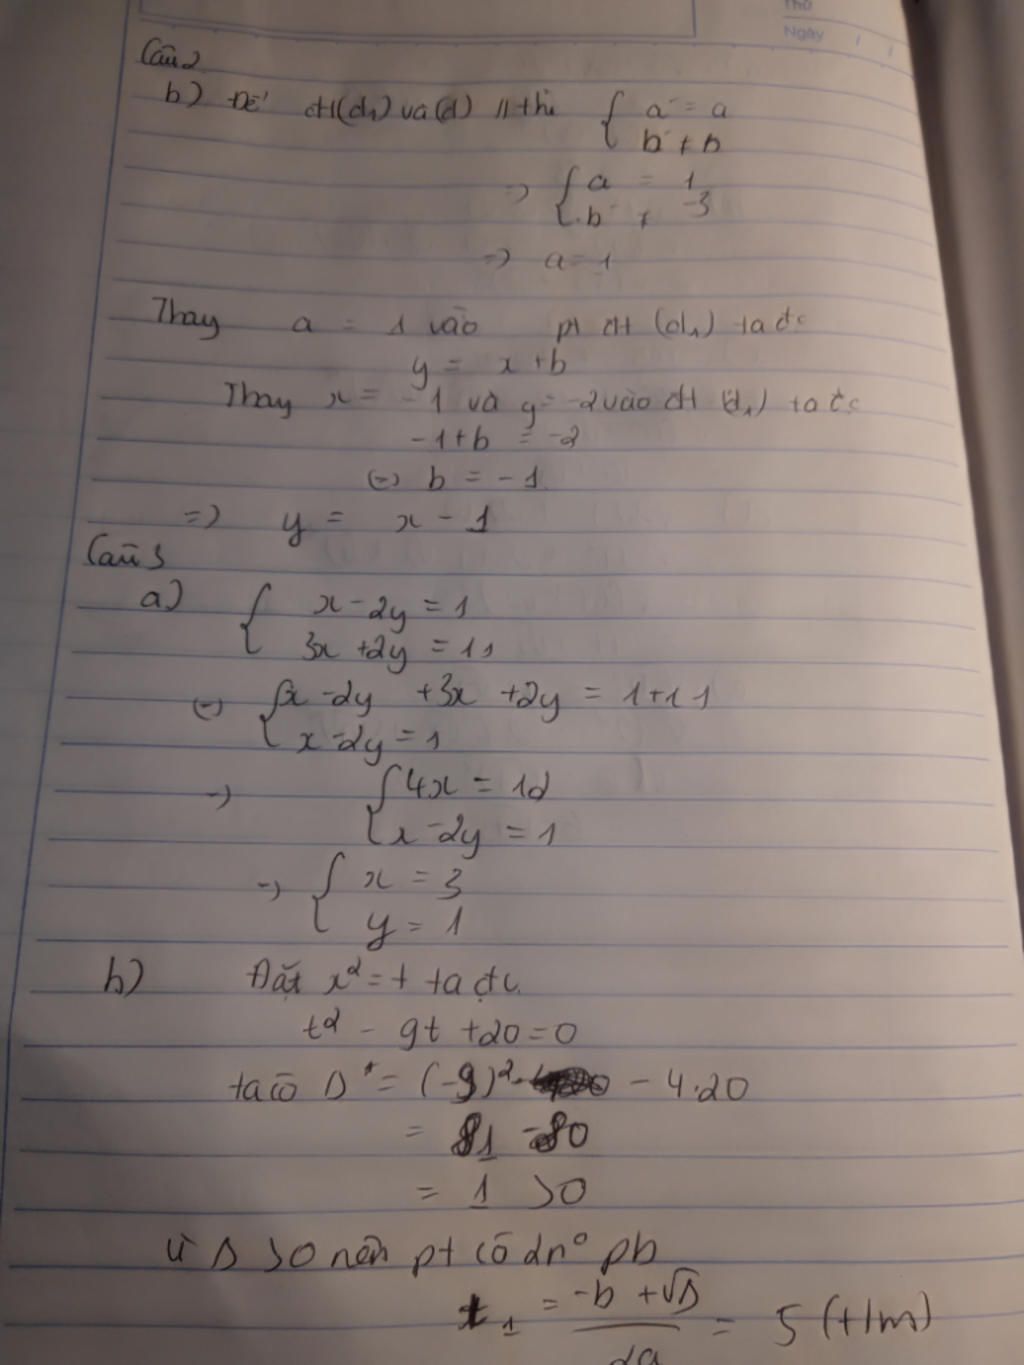 Thứ
Ngày / /
Câu 2
b) Để đt(d₁) va(d) // thì { a' = a
b' ≠ b
=> { a = 1
b ≠ -3
=> a = 1
Thay a = 1 vào pt đt (d₁) ta đc
y = x + b
Thay x = -1 và y = -2 vào đt (d₁) ta đc
-1 + b = -2
(=) b = -1
=) y = x - 1
Câu 3
a) { x - 2y = 1
3x + 2y = 11
(=) { x - 2y + 3x + 2y = 1 + 11
x - 2y = 1
=) { 4x = 12
x - 2y = 1
=) { x = 3
y = 1
b) Đặt x² = t ta đc
t² - 9t + 20 = 0
ta có Δ = (-9)² - 4.20
= 81 - 80
= 1 > 0
Vì Δ > 0 nên pt có 2n° pb
t₁ = (-b + √Δ)/2a = 5 (t/m)